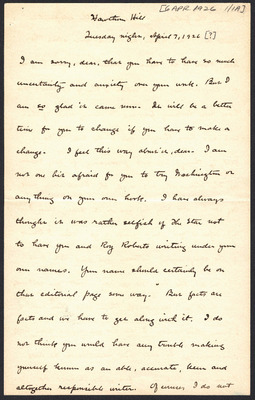 [6 APR 1926 1/1A]
Hawthorn Hill
Tuesday night, April 7, 1926 [?]
I am sorry, dear, that you have to have so much
uncertainty and anxiety over your work. But I
am so glad it came now. It will be a better
time for you to change if you have to make a
change. I feel this way about it, dear. I am
not one bit afraid for you to try Washington or
anything on your own hook. I have always
thought it was rather selfish of the Star not
to have you and Roy Roberts writing under your
own names. Your name should certainly be on
that editorial page some way. But facts are
facts and we have to get along with it. I do
not think you would have any trouble making
yourself known as an able, accurate, keen and
altogether responsible writer. Of course I do not